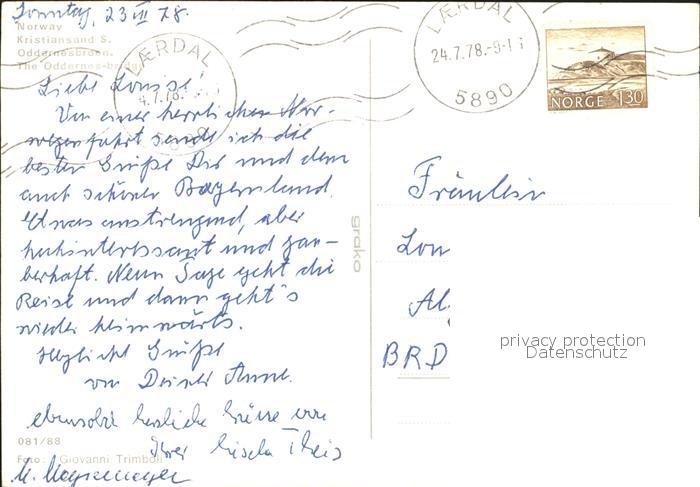 Sonntag, 23 VII 78.
Norway
Kristiansand S.
Oddernesbroen.
The Oddernes-bridge
Liebe Louise!
Von einer herrlichen Nor-
wegenfahrt sende ich die
besten Grüße Dir und dem
auch schönen Bayernland.
Etwas anstrengend, aber
hochinteressant und zau-
berhaft. Neun Tage geht die
Reise und dann geht's
wieder heimwärts.
Herzliche Grüße
von Deiner Anne.
ebensolche herzliche Grüsse von
Ihrer Gisela Theis
081/88
Foto: Giovanni Trimboli
M.
grako
LÆRDAL
4.7.78.
LÆRDAL
24.7.78.-9-1
5890
NORGE 130
Fräulein
Lou
BRD
privacy protection
Datenschutz